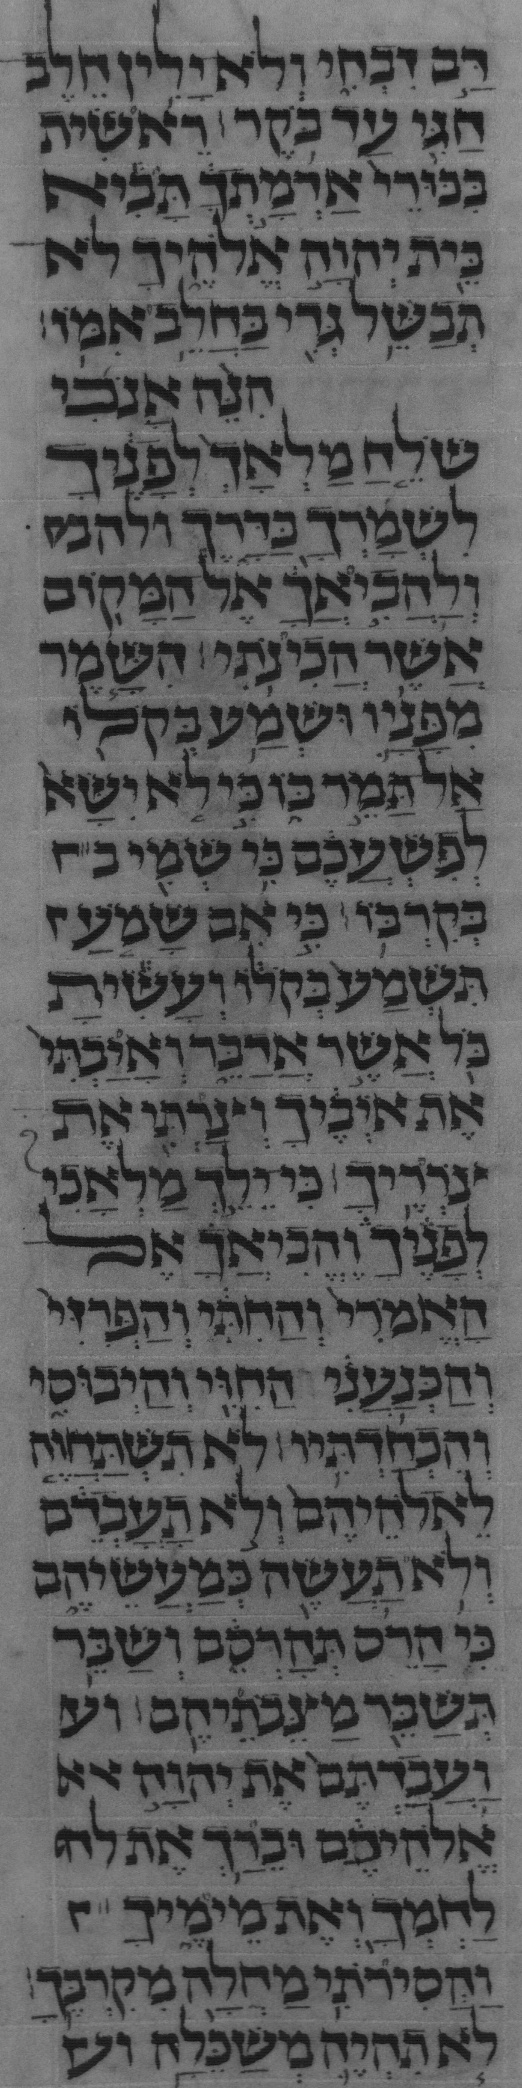 רַּ֣ם דִּבְחִ֑י וְלֹא יָלִ֥ין חֵֽלֶב
חַגִּ֖י עַד בֹּֽקֶר׃ רֵאשִׁ֗ית
בִּכּוּרֵי֙ אַדְמָ֣תְךָ֔ תָּבִ֕יא
בֵּ֖ית יְהוָ֣ה אֱלֹהֶ֑יךָ לֹא
תְבַשֵּׁ֥ל גְּדִ֖י בַּחֲלֵ֥ב אִמּֽוֹ׃
הִנֵּ֨ה אָנֹכִ֜י
שֹׁלֵ֤חַ מַלְאָךְ֙ לְפָנֶ֔יךָ
לִשְׁמָרְךָ֖ בַּדָּ֑רֶךְ ולהב
וְלַהֲבִ֣יאֲךָ֔ אֶל הַמָּק֖וֹם
אֲשֶׁ֥ר הֲכִינֹֽתִי׃ הִשָּׁ֧מֶר
מִפָּנָ֛יו וּשְׁמַ֥ע בְּקֹל֖וֹ
אַל תַּמֵּ֣ר בּ֑וֹ כִּ֣י לֹ֤א יִשָּׂא֙
לְפִשְׁעֲכֶ֔ם כִּ֥י שְׁמִ֖י ב
בְּקִרְבּֽוֹ׃ כִּ֣י אִם שָׁמֹ֤עַ
תִּשְׁמַע֙ בְּקֹל֔וֹ וְעָשִׂ֕יתָ
כֹּ֖ל אֲשֶׁ֣ר אֲדַבֵּ֑ר וְאָֽיַבְתִּי֙
אֶת אֹ֣יְבֶ֔יךָ וְצַרְתִּ֖י אֶת
צֹרְרֶֽיךָ׃ כִּי יֵלֵ֣ךְ מַלְאָכִי֮
לְפָנֶיךָ֒ וֶהֱבִֽיאֲךָ֗ אֶל
הָֽאֱמֹרִי֙ וְהַ֣חִתִּ֔י וְהַפְּרִזִּי֙
וְהַֽכְּנַעֲנִ֔י הַחִוִּ֖י וְהַיְבוּסִ֑י
וְהִכְחַדְתִּֽיו׃ לֹֽא תִשְׁתַּחֲוֶ֤ה
לֵאלֹֽהֵיהֶם֙ וְלֹ֣א תָֽעָבְדֵ֔ם
וְלֹ֥א תַעֲשֶׂ֖ה כְּמַֽעֲשֵׂיהֶ֑ם
כִּ֤י הָרֵס֙ תְּהָ֣רְסֵ֔ם וְשַׁבֵּ֥ר
תְּשַׁבֵּ֖ר מַצֵּבֹתֵיהֶֽם׃ וע
וַעֲבַדְתֶּ֗ם אֵ֚ת יְהוָ֣ה
אֱלֹֽהֵיכֶ֔ם וּבֵרַ֥ךְ אֶֽת לח
לַחְמְךָ֖ וְאֶת מֵימֶ֑יךָ
וַהֲסִרֹתִ֥י מַחֲלָ֖ה מִקִּרְבֶּֽךָ׃
לֹ֥א תִהְיֶ֛ה מְשַׁכֵּלָ֥ה וע